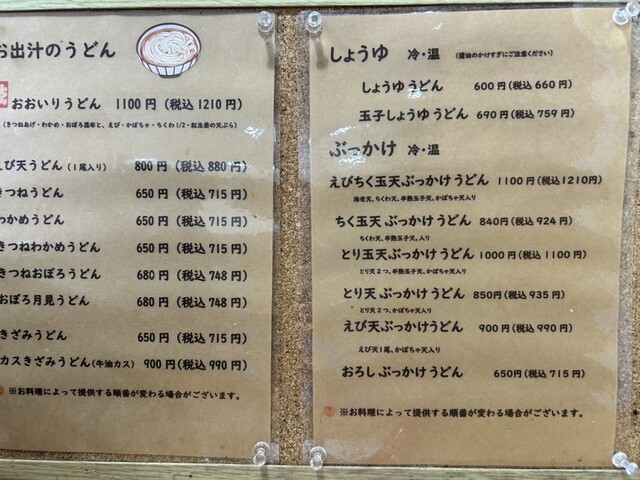 お出汁のうどん
おおいりうどん 1100円(税込1210円)
(きつねあげ・わかめ・おぼろ昆布と、えび・かぼちゃ・ちくわ1/2・紅生姜の天ぷら)
えび天うどん(1尾入り) 800円(税込880円)
きつねうどん 650円(税込715円)
わかめうどん 650円(税込715円)
きつねわかめうどん 650円(税込715円)
きつねおぼろうどん 680円(税込748円)
おぼろ月見うどん 680円(税込748円)
きざみうどん 650円(税込715円)
カスきざみうどん(牛油カス) 900円(税込990円)
※お料理によって提供する順番が変わる場合がございます。
しょうゆ 冷・温 (醤油のかけすぎにご注意ください)
しょうゆうどん 600円(税込660円)
玉子しょうゆうどん 690円(税込759円)
ぶっかけ 冷・温
えびちく玉天ぶっかけうどん 1100円(税込1210円)
海老天、ちくわ天、半熟玉子天、かぼちゃ天入り
ちく玉天ぶっかけうどん 840円(税込924円)
ちくわ天、半熟玉子天、入り
とり玉天ぶっかけうどん 1000円(税込1100円)
とり天2つ、半熟玉子天、かぼちゃ天入り
とり天ぶっかけうどん 850円(税込935円)
とり天2つ、かぼちゃ天入り
えび天ぶっかけうどん 900円(税込990円)
えび天1尾、かぼちゃ天入り
おろしぶっかけうどん 650円(税込715円)
※お料理によって提供する順番が変わる場合がございます。